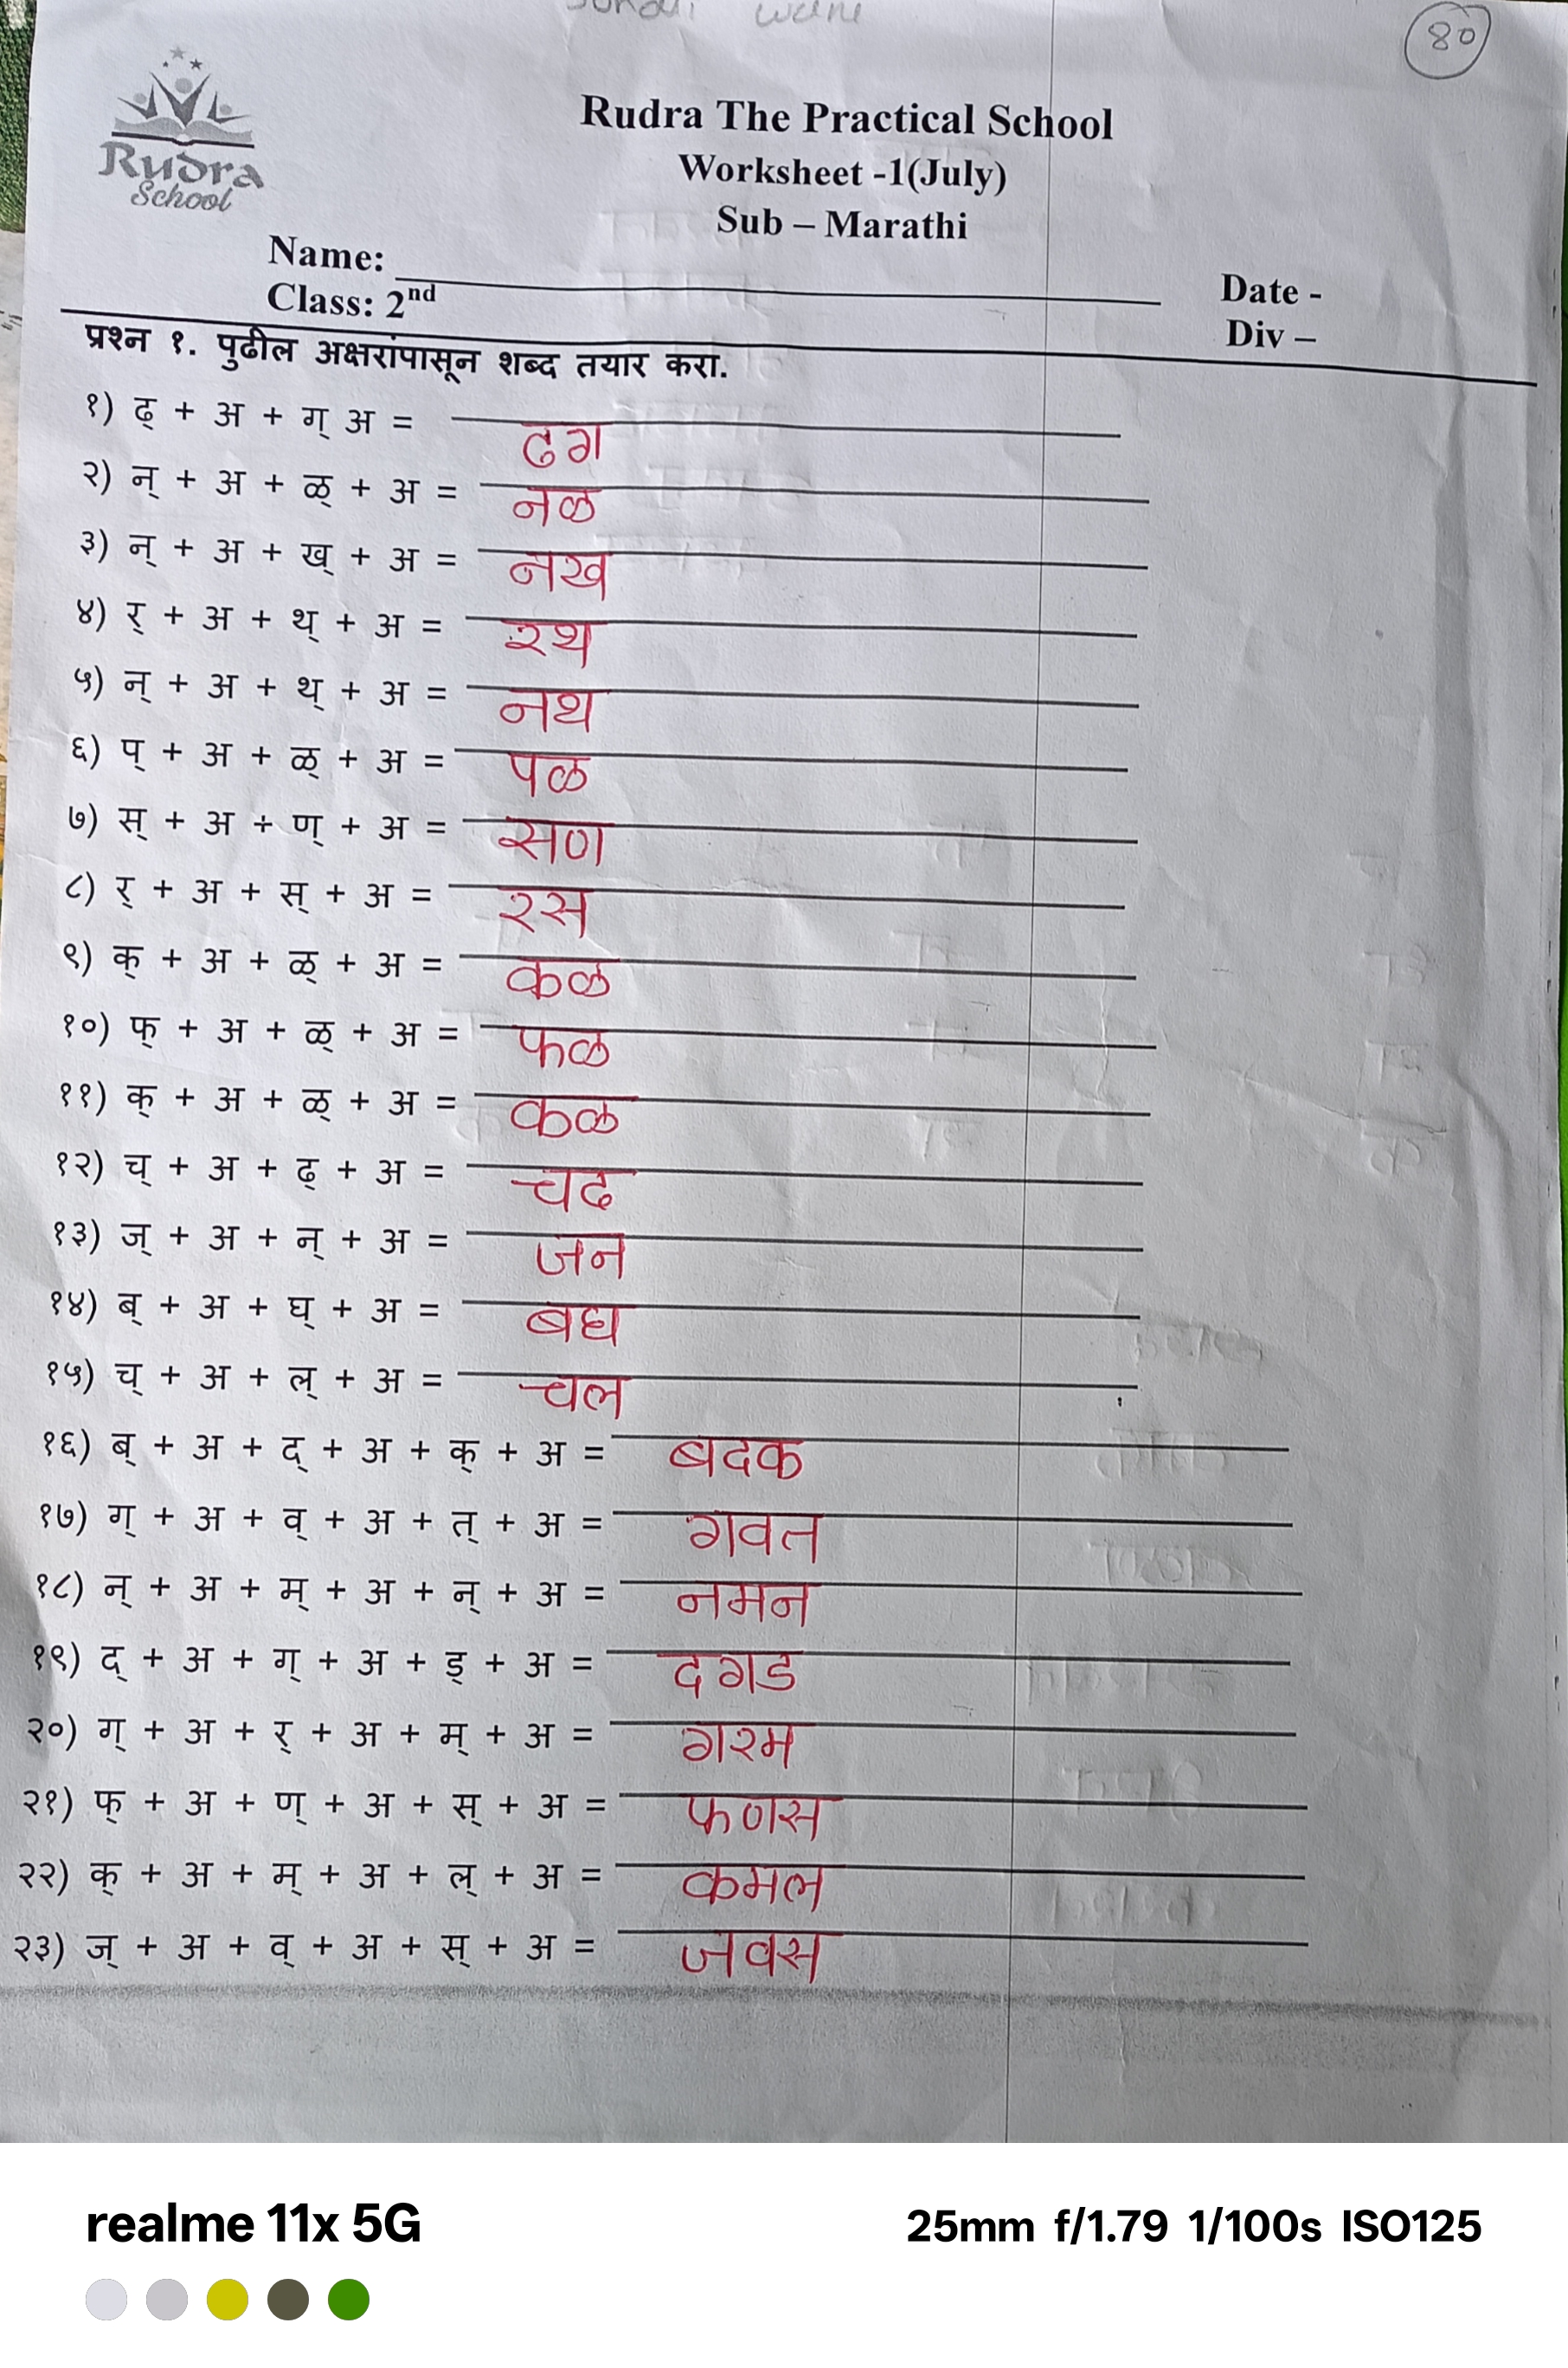 80
Rudra
School
Rudra The Practical School
Worksheet -1(July)
Sub – Marathi
Name:
Class: 2nd
Date -
Div –
प्रश्न १. पुढील अक्षरांपासून शब्द तयार करा.
१) ढ् + अ + ग् अ = ढग
२) न् + अ + ळ् + अ = नळ
३) न् + अ + ख् + अ = नख
४) र् + अ + थ् + अ = रथ
५) न् + अ + थ् + अ = नथ
६) प् + अ + ळ् + अ = पळ
७) स् + अ + ण् + अ = सण
८) र् + अ + स् + अ = रस
९) क् + अ + ळ् + अ = कळ
१०) फ् + अ + ळ् + अ = फळ
११) क् + अ + ळ् + अ = कळ
१२) च् + अ + ढ् + अ = चढ
१३) ज् + अ + न् + अ = जन
१४) ब् + अ + घ् + अ = बघ
१५) च् + अ + ल् + अ = चल
१६) ब् + अ + द् + अ + क् + अ = बदक
१७) ग् + अ + व् + अ + त् + अ = गवत
१८) न् + अ + म् + अ + न् + अ = नमन
१९) द् + अ + ग् + अ + ड् + अ = दगड
२०) ग् + अ + र् + अ + म् + अ = गरम
२१) फ् + अ + ण् + अ + स् + अ = फणस
२२) क् + अ + म् + अ + ल् + अ = कमल
२३) ज् + अ + व् + अ + स् + अ = जवस
realme 11x 5G
25mm f/1.79 1/100s ISO125